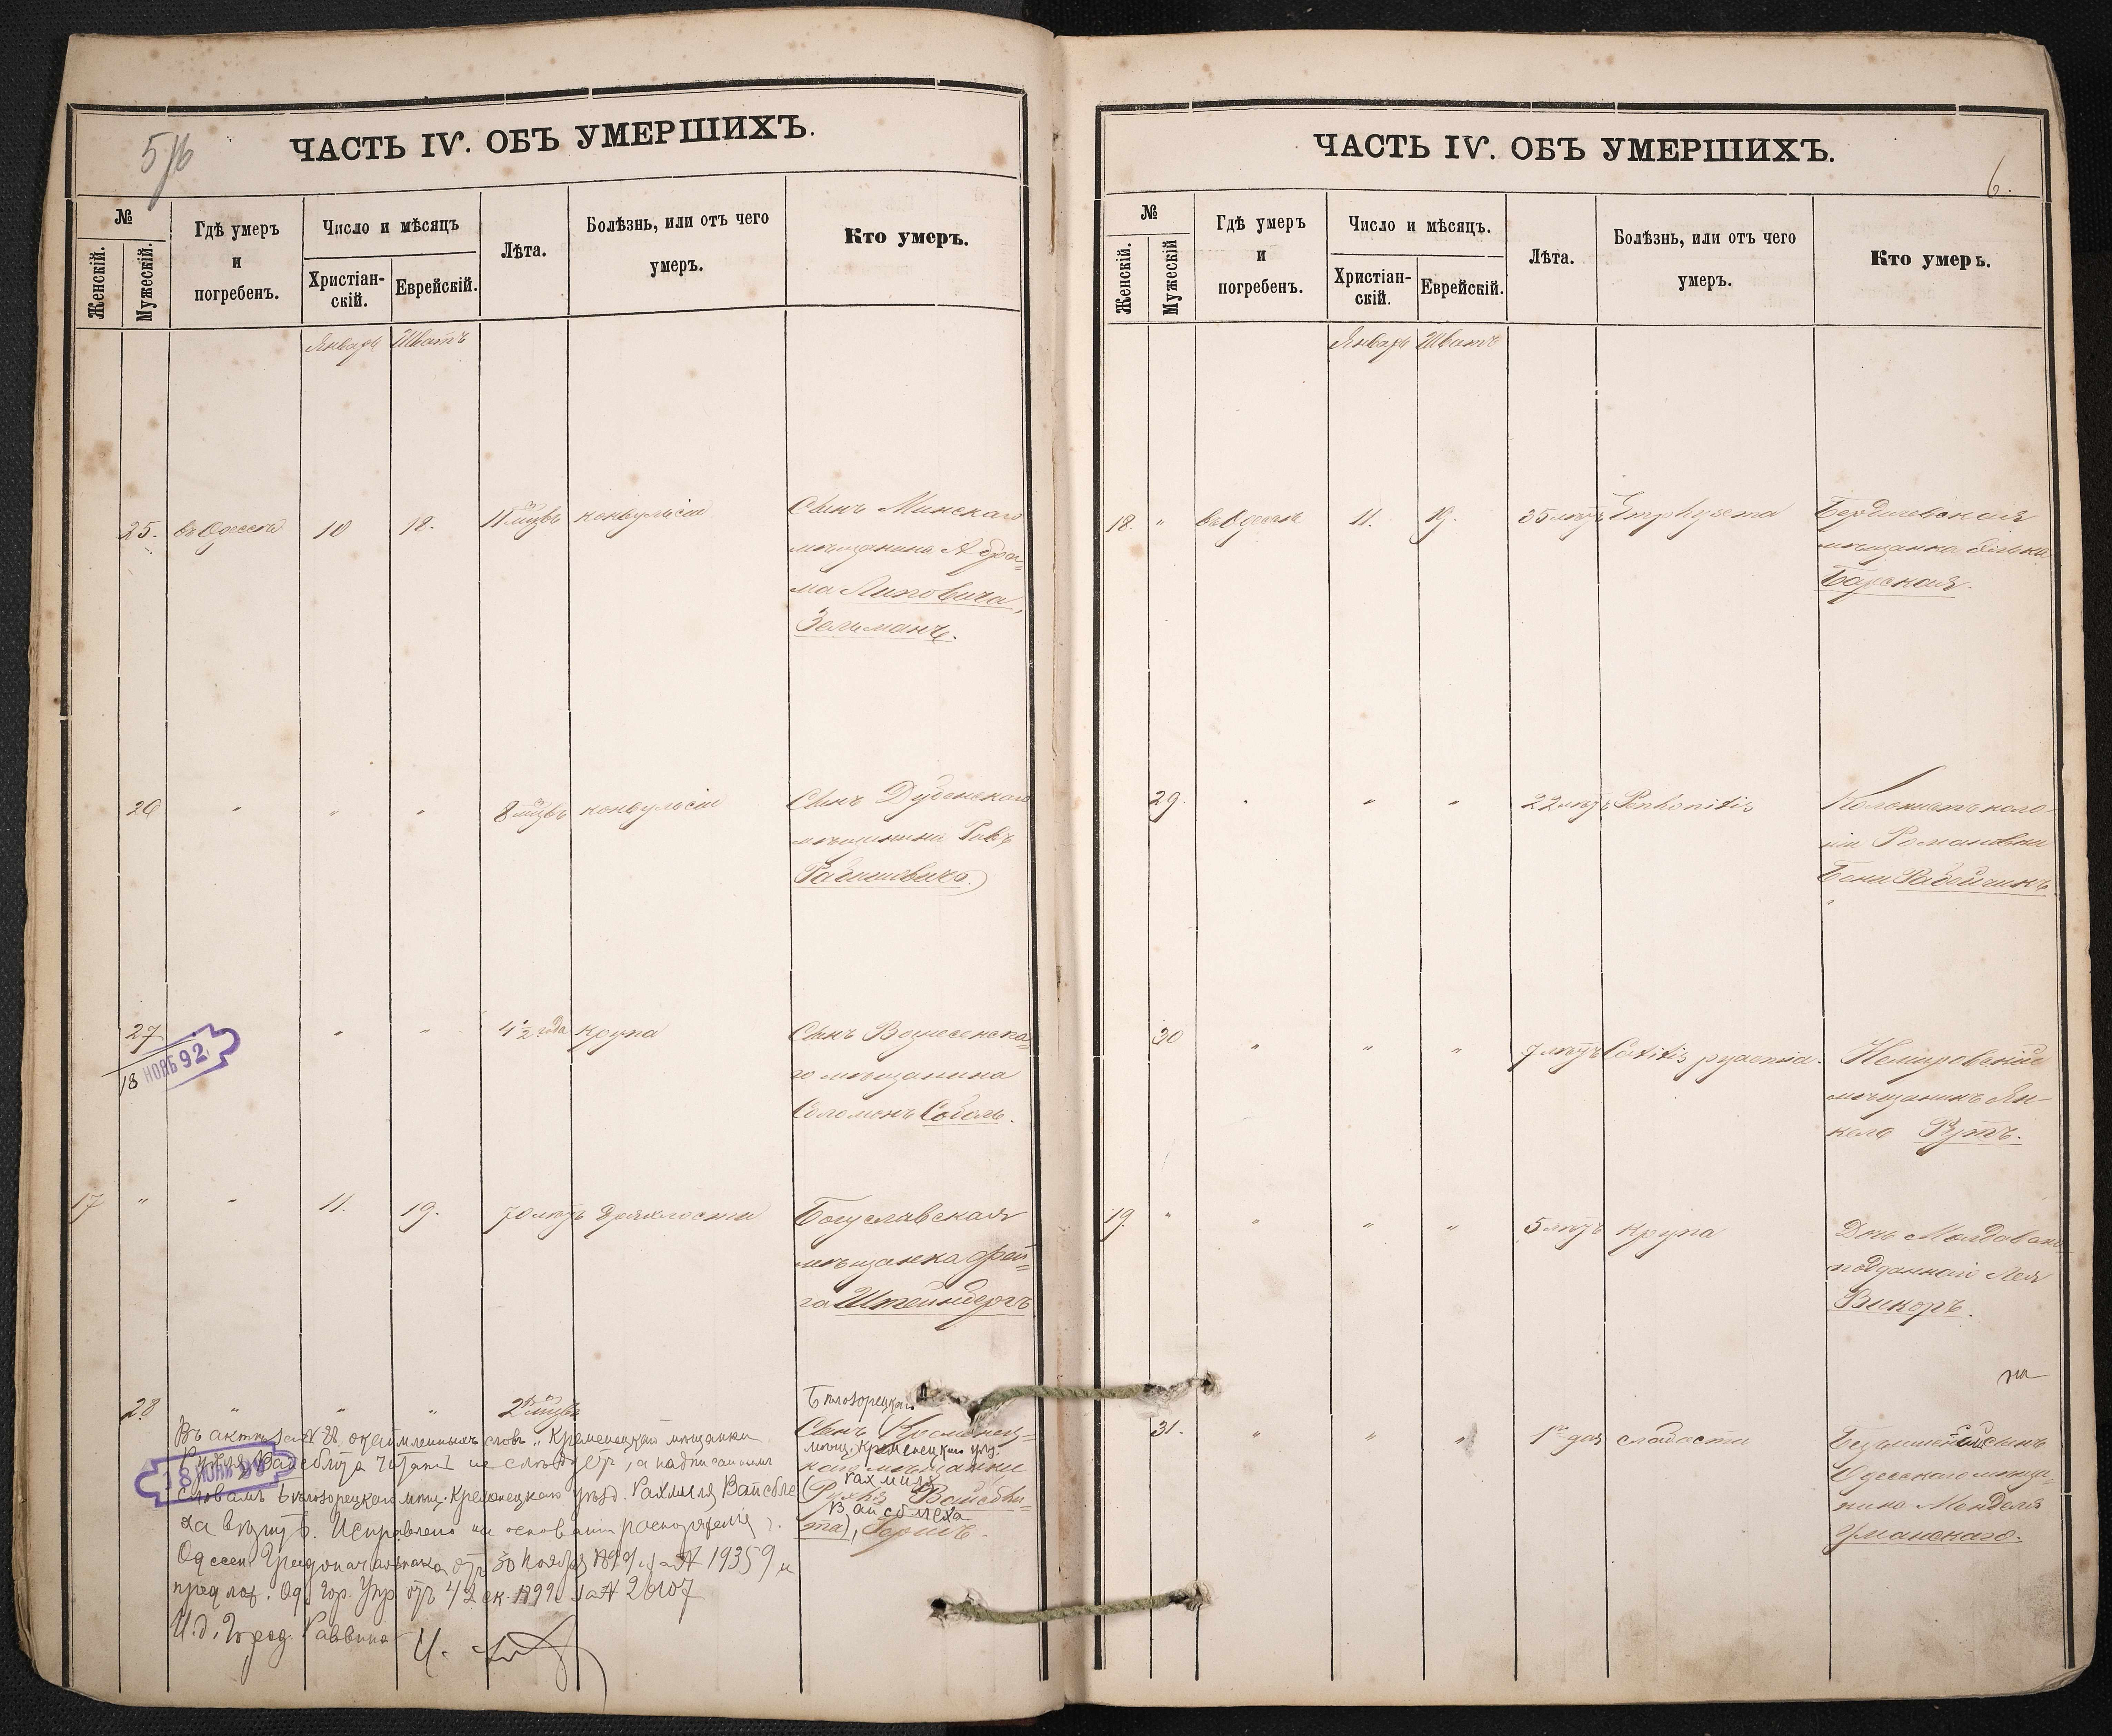 5/6
ЧАСТЬ IV. ОБЪ УМЕРШИХЪ.
№
Женскій.
Мужескій.
Гдѣ умеръ
и
погребенъ.
Число и мѣсяцъ
Христіан-
скій.
Еврейскій.
Лѣта.
Болѣзнь, или отъ чего
умеръ.
Кто умеръ.
Январь Шватъ
25. въ Одессѣ 10 18. 11 мцвъ конвульсіи Сынъ Минскаго
мѣщанина Абра=
ма Липовича,
Зельманъ.
26 " " " 8 мцвъ конвульсіи Сынъ Дубенскаго
мѣщанина
Рабиновича.
27 " " 4½ года крупа Сынъ Вознесенска=
го мѣщанина
Соломонъ Соболь.
18 НОЯБ 92
17 " " 11. 19. 70 лѣтъ дряхлости Богуславская
мѣщанка Фей=
га Штейнбергъ
28 " " " 2 мцвъ
Бѣлозорецкаго
Сынъ Кременец=
мѣщ. Кременецкаго уѣз.
каго мѣщанки
Рахмиля
Вайсбли=
Вайсблеха
та),
Въ актѣ за № 28 окаймленныхъ словъ "Кременецкой мѣщанки
Вайсблита читать не слѣдуетъ, а надписаннымъ
18 ИЮНЯ 99
словамъ Бѣлозорецкаго мѣщ. Кременецкаго уѣзд. Рахмиля Вайсбле
ха вѣрить. Исправлено на основаніи распоряженія г.
Одесск. Градоначальника отъ 30 Ноября 1899 г. за № 19359 и
предлож. Од. Гор. Упр. отъ 4 Дек. 1899 г. за № 26107
И. д. Город. Раввина
ЧАСТЬ IV. ОБЪ УМЕРШИХЪ.
6.
№
Женскій.
Мужескій
Гдѣ умеръ
и
погребенъ.
Число и мѣсяцъ.
Христіан-
скій.
Еврейскій.
Лѣта.
Болѣзнь, или отъ чего
умеръ.
Кто умеръ.
Январь Шватъ
18. " въ Одессѣ 11. 19. 35 лѣтъ Emphysema Бердичевская
мѣщанка
Барская.
29. " " " 22 лѣтъ Колонистъ коло-
ніи Романовки
30 " " " 7 лѣтъ Немировскій
мѣщанинъ Ян-
кель
19. " " " " 5 лѣтъ крупа Дочь Молдавско
подданнаго Лея
Викоръ.
31. " " " 1 дня слабости Безъименный сынъ
Одесскаго мѣща-
нина Менделя
Уманскаго.